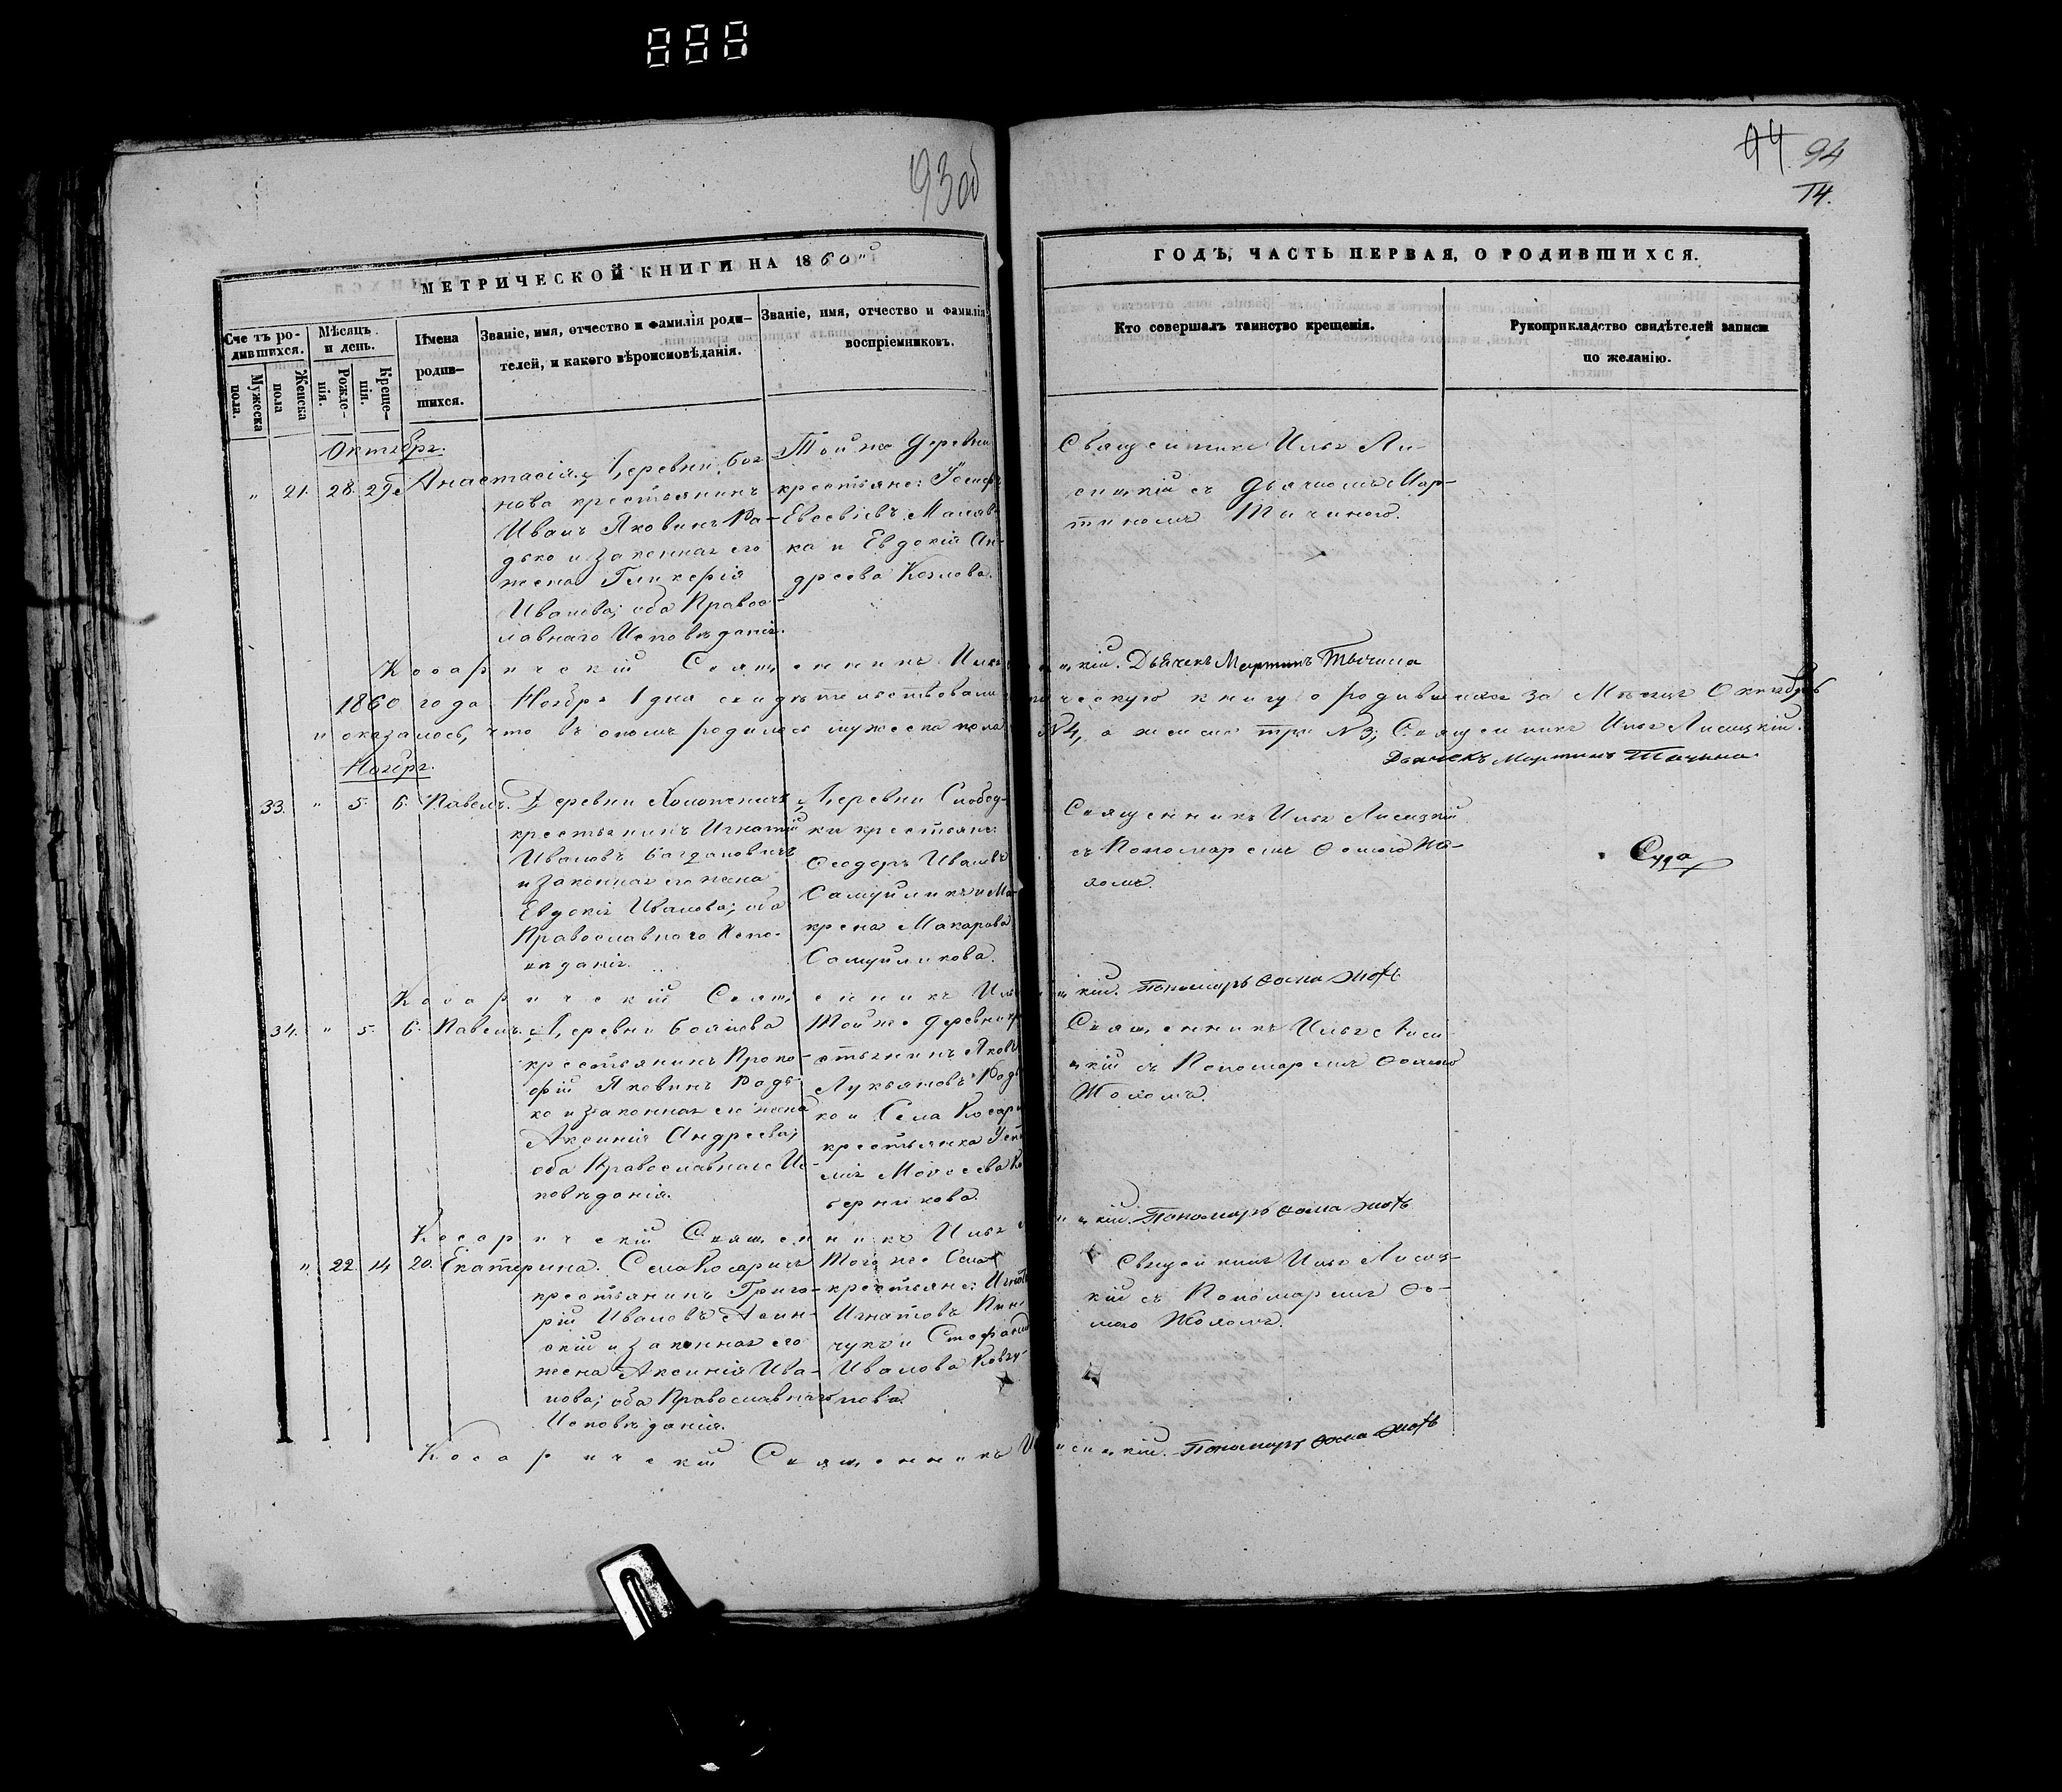 93об
44 94
14.
МЕТРИЧЕСКОЙ КНИГИ НА 1860й
ГОДЪ, ЧАСТЬ ПЕРВАЯ, О РОДИВШИХСЯ.
Сче тъ ро-
дившихся.
Мужеска
пола.
Женска
пола
Мѣсяцъ
и день.
Рожде-
нія.
Креще-
нія.
Имена
родив-
шихся.
Званіе, имя, отчество и фамилія роди-
телей, и какого вѣроисповѣданія.
Званіе, имя, отчество и фамилія
воспріемниковъ.
Кто совершалъ таинство крещенія.
Рукоприкладство свидѣтелей записи
по желанію.
Октябрь.
" 21. 28. 29. Анастасія.
Деревни
крестьянинъ
Иванъ Яковинъ Ра-
дько и законная его
жена Гликерія
Иванова; оба Правос-
лавнаго Исповѣданія.
Той же деревни
крестьяне: Іосифъ
Евсевіевъ
ка и Евдокія Ан-
дреева Козлова.
Священникъ Илья Ли-
сицкій съ Дьячкомъ Мар-
тиномъ Тычиною.
Косаричскій Священникъ Илья Лисицкій. Дьячекъ Мартинъ Тычина
1860 года Ноября 1 дня свидѣтельствовали метрическую книгу о родившихся за Мѣсяцъ Октябрь
и оказалось, что въ ономъ родилось мужеска пола N4, а женска три N3; Священникъ Илья Лисицкій.
Дьячекъ Мартинъ Тычина
Ноябрь.
33. " 5. 6. Павелъ.
Деревни
крестьянинъ Игнатій
Ивановъ Богдановичъ
и законная его жена
Евдокія Иванова; оба
Православнаго Испо-
вѣданія.
Деревни Слобод-
ки крестьяне:
Ѳеодоръ Ивановъ
Самуйликъ и Ма-
крена Макарова
Самуйликова.
Священникъ Илья Лисицкій
съ Пономаремъ Ѳомою Жо-
ломъ.
Суда
Косаричскій Священникъ Илья Лисицкій. Пономарь Ѳома
34. " 5. 6. Павелъ.
Деревни
крестьянинъ Проко-
фій Яковинъ Радь-
ко и законная его жена
Аксинія Андреева;
оба Православнаго Ис-
повѣданія.
Той же деревни кре-
стьянинъ Яковъ
Лукьяновъ Радь
ко и Села Косари
крестьянка
Моѵсеева
Священникъ Илья Лиси
цкій съ Пономаремъ Ѳомою
Жоломъ.
Косаричскій Священникъ Илья Лисицкій. Пономарь Ѳома
" 22. 14. 20. Екатерина.
Села Косаричъ
крестьянинъ Григо-
рій Ивановъ
скій и законная его
жена Аксинія Ива-
нова; оба Православнаго
Исповѣданія.
Того же Села
крестьяне: Игнатъ
Игнатовъ Пин-
чукъ и Стефанида
Иванова
нова.
Священникъ Илья Лисиц-
кій съ Пономаремъ Ѳо-
мою Жоломъ.
Косаричскій Священникъ Илья Лисицкій. Пономарь Ѳома